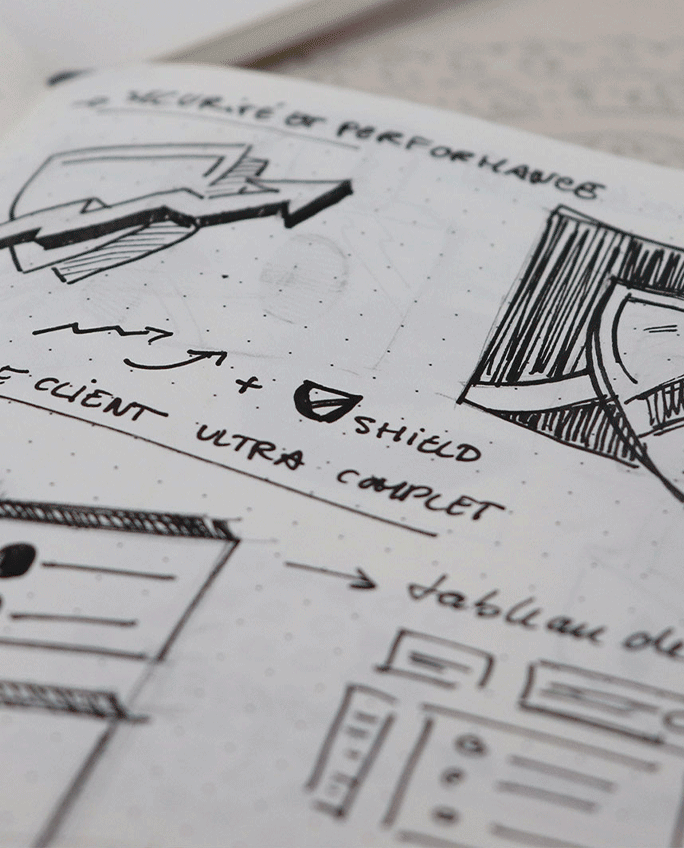 SÉCURITÉ ET PERFORMANCE
+ SHIELD
E CLIENT ULTRA COMPLET
→ tableau de